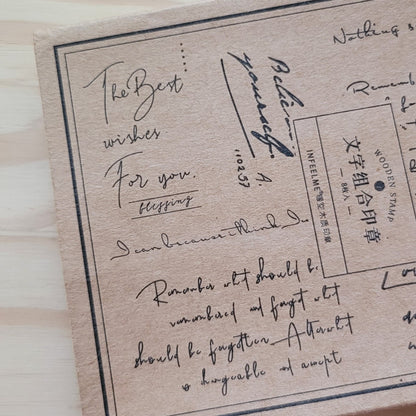 The Best
wishes
For you.
blessing
Believe
yourself.
A.
110237
Nothing
Remember
WOODEN STAMP
文字组合印章
8枚入
INFEELME
I can because i think I
Remember what should be
remembered and forget what
should be forgotten. Alter what
is changeable and accept